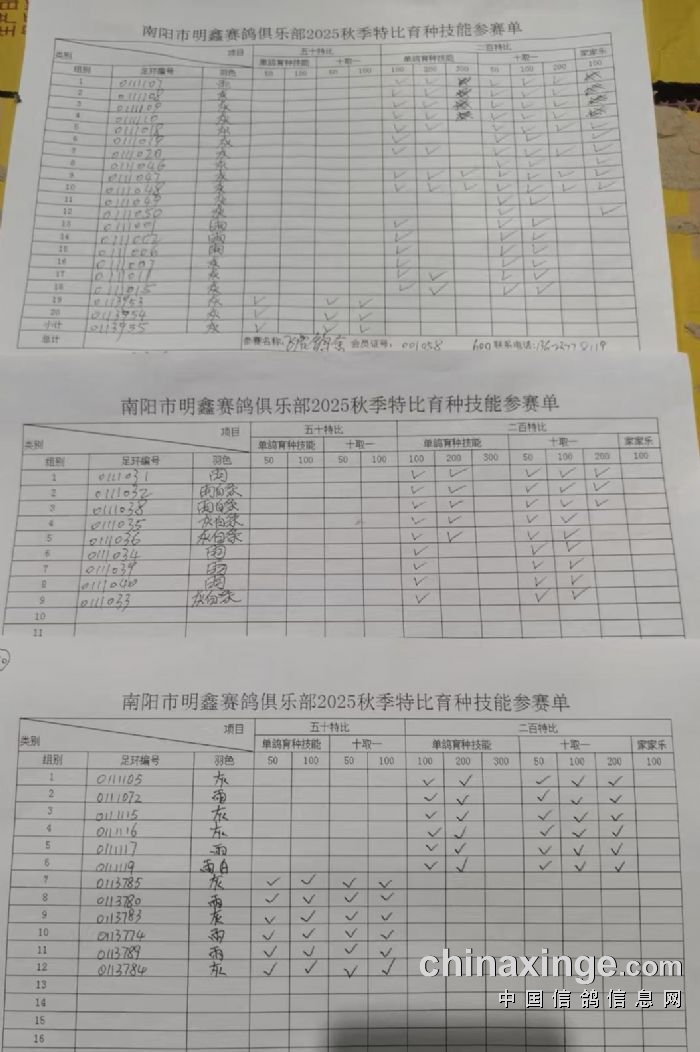 南阳市明鑫赛鸽俱乐部2025秋季特比育种技能参赛单
项目 五十特比 二百特比 家家乐
类别 单鸽育种技能 十取一 单鸽育种技能 十取一
组别 足环编号 羽色 50 100 50 100 100 200 300 50 100 200 100
1 0111107 雨
2 0111108 灰 ✓ ✓ ✓ ✓ ✓
3 0111109 灰 ✓ ✓ ✓ ✓ ✓
4 灰 ✓ ✓ ✓ ✓ ✓
5 0111018 灰
6 0111019 灰
7 0111020 灰
8 0111046 灰
9 0111047 灰
10 0111048 灰
11 0111049 灰
12 0111050 灰
13 0111001 雨
14 0111002 雨
15 0111006 雨
16 0111007 灰
17 0111011 灰
18 0111015 灰
19 0113953 灰 ✓ ✓ ✓
20 0113954 灰 ✓ ✓ ✓
小计 0113955 灰 ✓ ✓ ✓
总计 参赛名称: 会员证号: 001058 联系电话:
南阳市明鑫赛鸽俱乐部2025秋季特比育种技能参赛单
项目 五十特比 二百特比
类别 单鸽育种技能 十取一 单鸽育种技能 十取一 家家乐
组别 足环编号 羽色 50 100 50 100 100 200 300 50 100 200 100
1 0111031 雨 ✓ ✓ ✓ ✓ ✓
2 0111032 雨白条 ✓ ✓ ✓ ✓ ✓
3 0111038 雨白条 ✓ ✓ ✓ ✓ ✓
4 0111035 灰白条 ✓ ✓ ✓ ✓
5 0111036 灰白条 ✓ ✓ ✓ ✓
6 0111034 雨 ✓ ✓ ✓
7 0111039 雨 ✓ ✓ ✓
8 0111040 雨 ✓ ✓ ✓
9 0111033 灰白条 ✓ ✓ ✓
10
11
南阳市明鑫赛鸽俱乐部2025秋季特比育种技能参赛单
项目 五十特比 二百特比
类别 单鸽育种技能 十取一 单鸽育种技能 十取一 家家乐
组别 足环编号 羽色 50 100 50 100 100 200 300 50 100 200 100
1 0111105 灰 ✓ ✓ ✓ ✓ ✓
2 0111072 雨 ✓ ✓ ✓ ✓ ✓
3 0111115 灰 ✓ ✓ ✓ ✓ ✓
4 0111116 灰 ✓ ✓ ✓ ✓ ✓
5 0111117 雨 ✓ ✓ ✓ ✓ ✓
6 0111119 雨白 ✓ ✓ ✓ ✓ ✓
7 0113785 灰 ✓ ✓ ✓ ✓
8 0113780 雨 ✓ ✓ ✓ ✓
9 0113783 灰 ✓ ✓ ✓ ✓
10 0113774 雨 ✓ ✓ ✓ ✓
11 0113789 雨 ✓ ✓ ✓ ✓
12 0113784 灰 ✓ ✓ ✓ ✓
13
14
15
16
chinaxinge.com
中国信鸽信息网